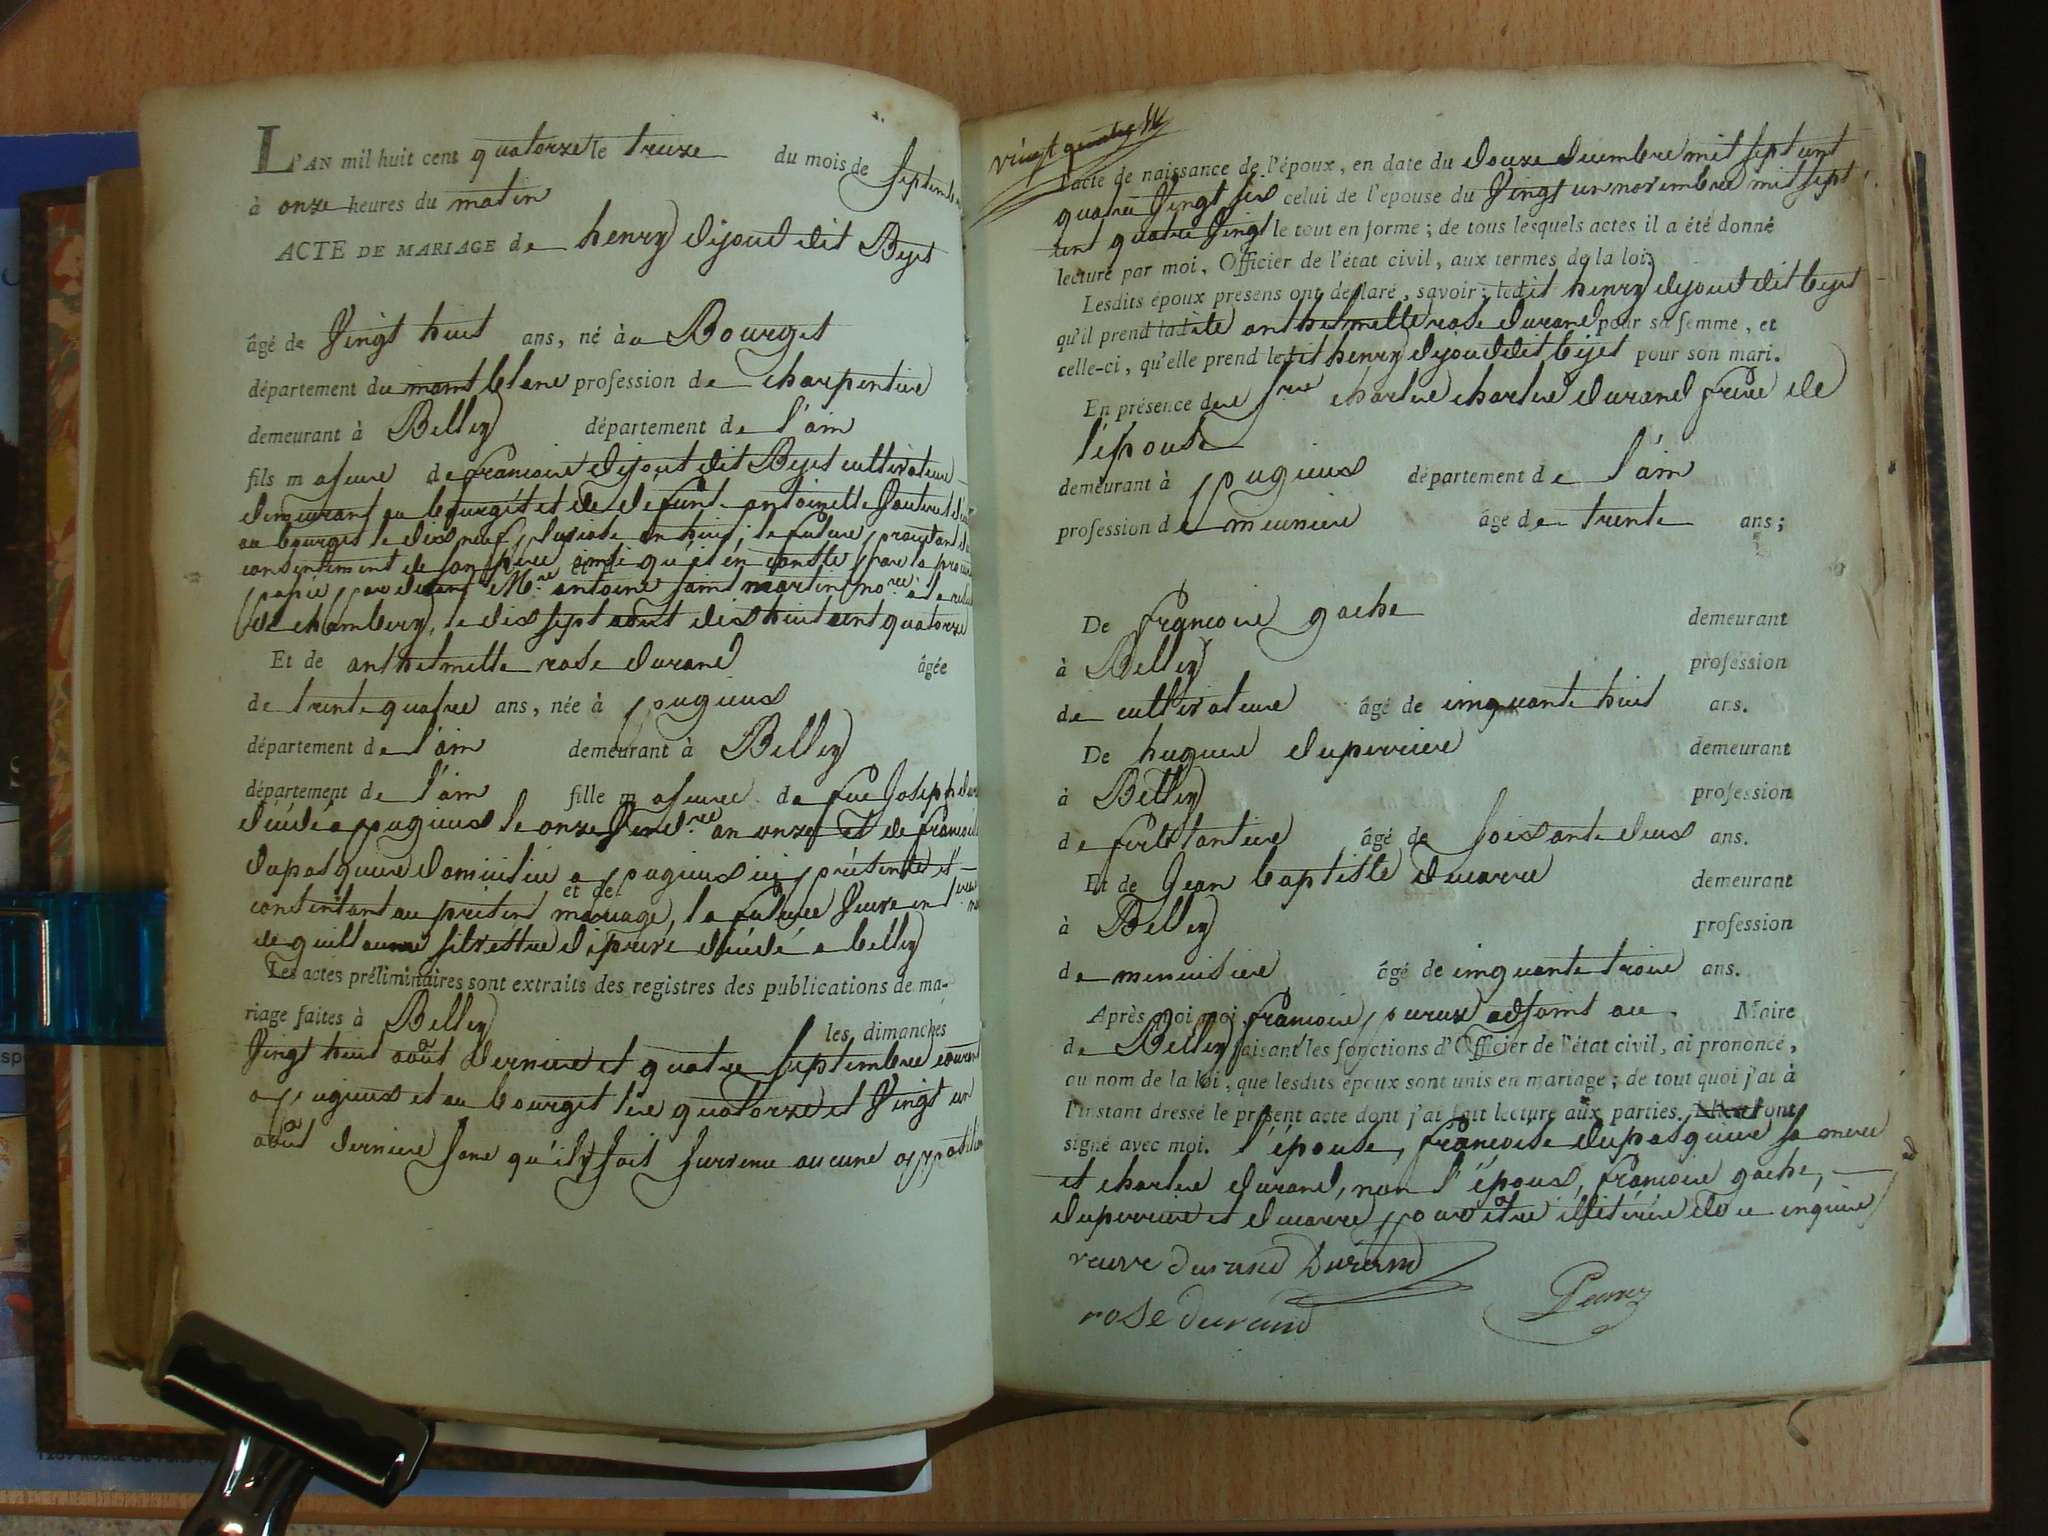 L'AN mil huit cent quatorze le treize du mois de Septembre
à onze heures du matin
ACTE DE MARIAGE de henry dijoud dit Bejet
âgé de Vingt huit ans, né au Bourget
département du mont blanc profession de charpentier
demeurant à Belley département de l'ain
fils majeur de françois dijout dit Bejet cultivateur
demeurant au bourget et de defunte antoinette
au bourget le dix neuf pluviose an huit, le futur procédant du
consentement de son père ainsi qu'il en conste par la
passée par devant Me antoine saint martin nore à la
de chambery, le dix sept août dix huit cent quatorze
Et de anthelmette rose durand âgée
de trente quatre ans, née à pugieux
département de l'ain demeurant à Belley
département de l'ain fille majeure de feu Joseph
décédé a pugieux le onze Vendre an onze et de françoise
dupasquier domiciliée a pugieux ici présente et
consentant au présent mariage, la future Veuve en
et de
de guillaume silvestre décédé a belley
Les actes préliminaires sont extraits des registres des publications de ma-
riage faites à Belley les dimanches
Vingt huit août dernier et quatre septembre courant
a pugieux et au bourget les quatorze et Vingt un
août dernier sans qu'il y soit survenu aucune opposition
vingt quatre
l'acte de naissance de l'époux, en date du douze decembre mil sept cent
quatre Vingt six celui de l'epouse du Vingt un novembre mil sept
cent quatre Vingt le tout en forme; de tous lesquels actes il a été donné
lecture par moi, Officier de l'état civil, aux termes de la loi.
Lesdits époux présens ont déclaré, savoir: ledit henry dijoud dit bejet
qu'il prend ladite anthelmette rose durand pour sa femme, et
celle-ci, qu'elle prend ledit henry dijoud dit bejet pour son mari.
En présence de charles charles durand frère de
l'épouse
demeurant à pugieux département de l'ain
profession de meunier âgé de trente ans;
De françois gache demeurant
à Belley profession
de cultivateur âgé de cinquante huit ans.
De hugues duperrier demeurant
à Belley profession
de ferblantier âgé de soixante deux ans.
Et de Jean baptiste ducarre demeurant
à Belley profession
de menuisier âgé de cinquante trois ans.
Après quoi moi françois peruz adjoint au Maire
de Belley faisant les fonctions d'Officier de l'état civil, ai prononcé,
au nom de la loi, que lesdits époux sont unis en mariage; de tout quoi j'ai à
l'instant dressé le présent acte dont j'ai fait lecture aux parties, ont
signé avec moi. l'épouse, françoise dupasquier sa mere
et charles durand, non l'époux, françois gache,
duperrier et ducarre pour être illitérés de ce enquis
veuve durand Durand
rose durand